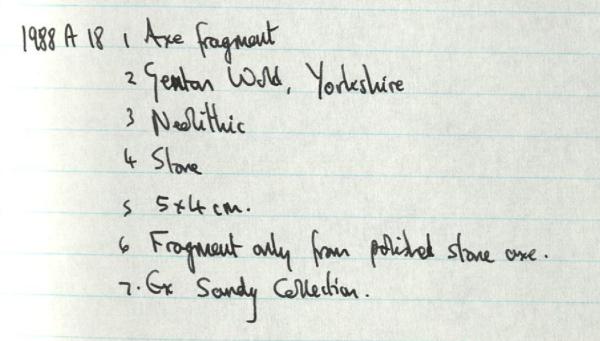 1988 A 18 1 Axe fragment
2 Ganton Wold, Yorkshire
3 Neolithic
4 Stone
5 5x4 cm.
6 Fragment only from polished stone axe.
7. Ex Sandy Collection.